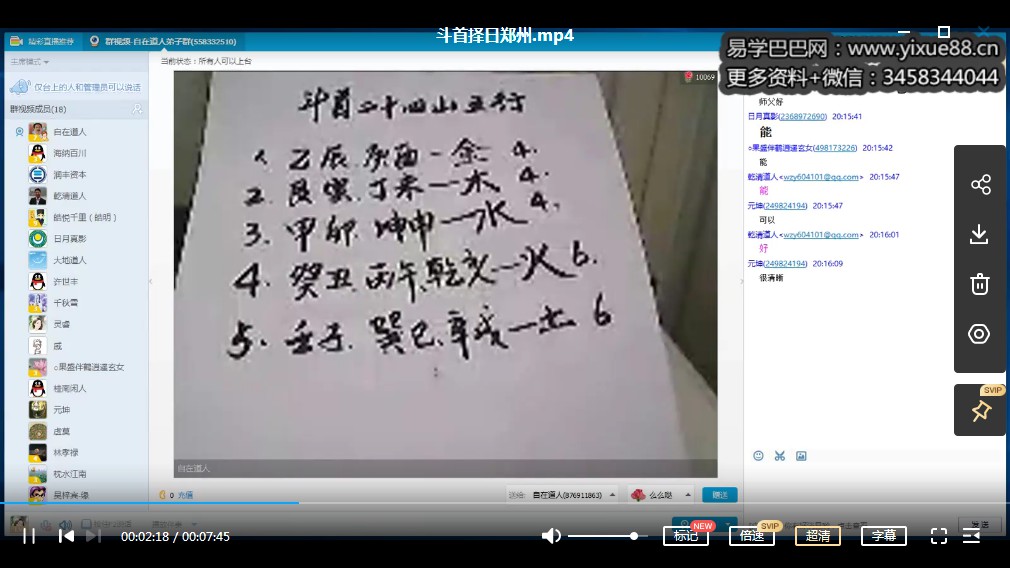 斗首择日郑州.mp4
易学巴巴网：www.yixue88.cn
更多资料+微信：3458344044
精彩直播推荐
群视频-自在道人弟子群(558332510)
主席模式
当前状态：所有人可以上台
仅台上的人和管理员可以说话
群视频成员(18)
自在道人
海纳百川
润丰资本
乾清道人
皓悦千里（皓明）
日月真影
大地道人
许世丰
千秋雪
灵睿
戚
○果盛伴鹤逍遥玄女
楼阁闲人
元坤
虚莫
林孝禄
枕水江南
10069
斗首二十四山五行
1、乙辰.庚酉一金 4.
2. 艮寅.丁未一木 4.
3. 甲卯.坤申一水 4.
4. 癸丑.丙午.乾亥一火 6.
5. 壬子.巽巳.辛戌一土 6
自在道人
师父好
日月真影(2368972690) 20:15:41
能
○果盛伴鹤逍遥玄女(498173226) 20:15:42
能
乾清道人<wzy604101@qq.com> 20:15:47
能
元坤(249824194) 20:15:47
可以
乾清道人<wzy604101@qq.com> 20:16:01
好
元坤(249824194) 20:16:09
很清晰
SVIP
0 充值
送给: 自在道人(876911863)
么么哒
赠送
00:02:18 / 00:07:45
标记
NEW
倍速
SVIP
超清
字幕